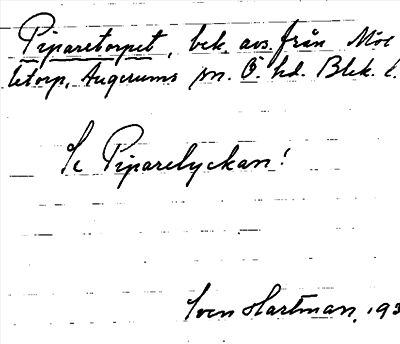 Piparetorpet, bek. avs. från Möl
letorp, Augerums sn. Ö. hd. Blek. l.
Se Piparelyckan!
Sven Hartman, 193